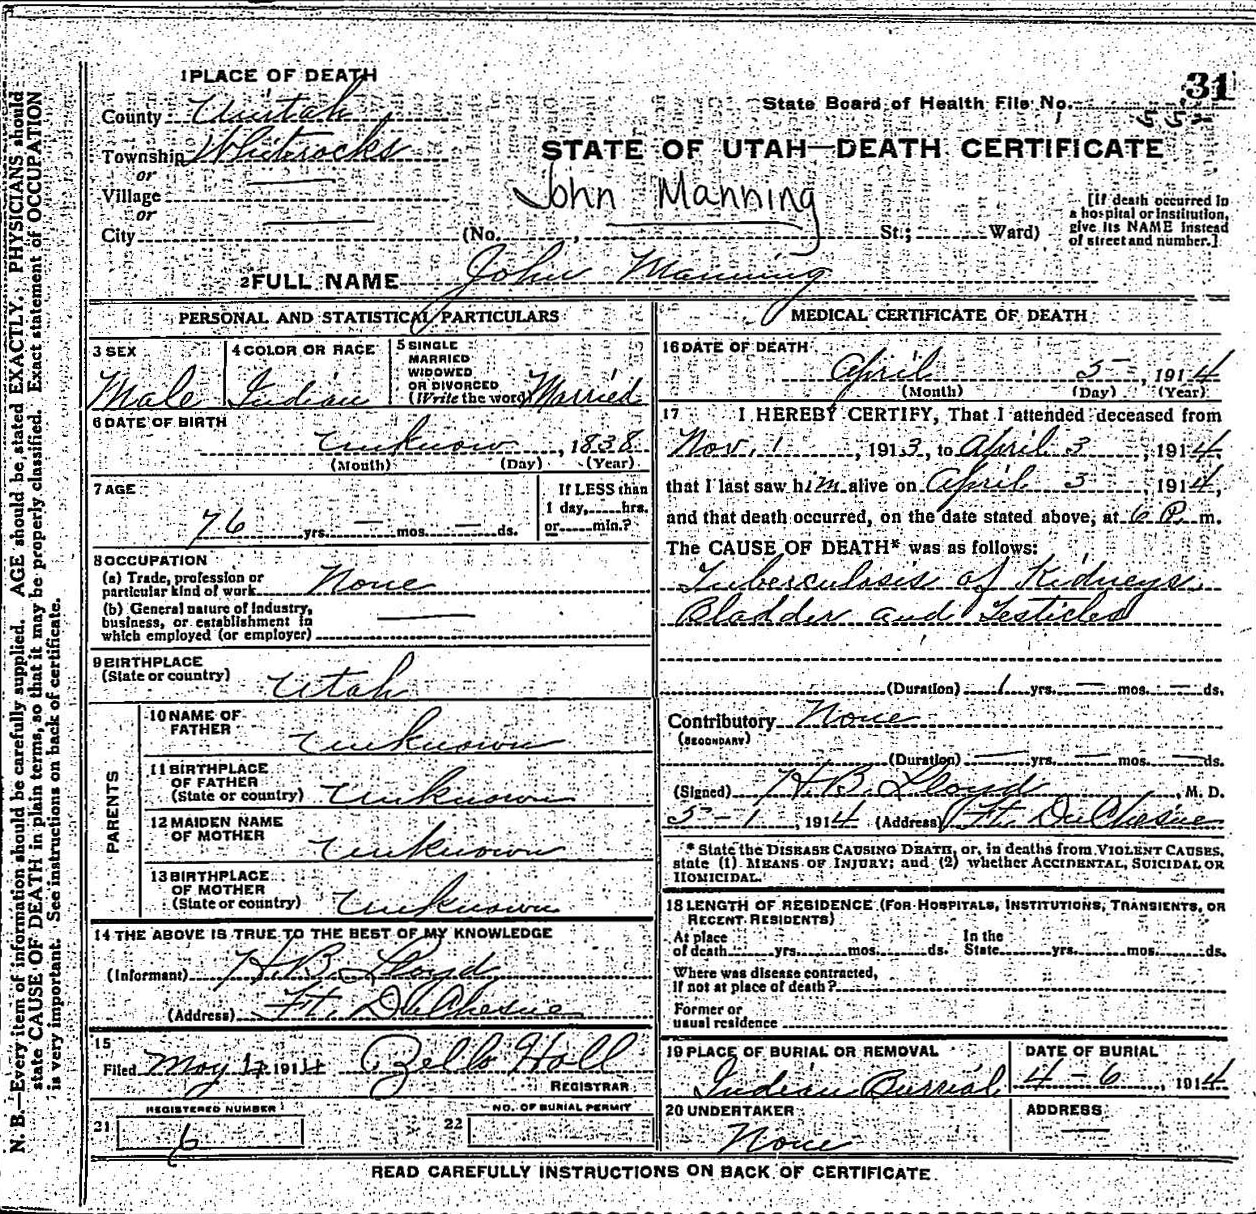 31
State Board of Health File No. 55
1 PLACE OF DEATH
County Uintah
Township Whiterocks
or
Village
or
City
STATE OF UTAH—DEATH CERTIFICATE
John Manning
(No. , St.; Ward)
[If death occurred in a hospital or institution, give its NAME instead of street and number.]
2 FULL NAME John Manning
PERSONAL AND STATISTICAL PARTICULARS
3 SEX
Male
4 COLOR OR RACE
Indian
5 SINGLE
MARRIED
WIDOWED
OR DIVORCED
(Write the word) Married
6 DATE OF BIRTH
Unknow, 1838
(Month) (Day) (Year)
7 AGE
76 yrs. — mos. — ds.
If LESS than
1 day, hrs.
or min.?
8 OCCUPATION
(a) Trade, profession or
particular kind of work None
(b) General nature of Industry,
business, or establishment in
which employed (or employer)
9 BIRTHPLACE
(State or country) Utah
PARENTS
10 NAME OF
FATHER Unknown
11 BIRTHPLACE
OF FATHER
(State or country) Unknown
12 MAIDEN NAME
OF MOTHER Unknown
13 BIRTHPLACE
OF MOTHER
(State or country) Unknown
14 THE ABOVE IS TRUE TO THE BEST OF MY KNOWLEDGE
(Informant) H. B. Lloyd
(Address) Ft. DuChesne
15
Filed May 1914 Zella Holl
REGISTRAR
REGISTERED NUMBER
21 6
NO. OF BURIAL PERMIT
22
MEDICAL CERTIFICATE OF DEATH
16 DATE OF DEATH
April 5, 1914
(Month) (Day) (Year)
17 I HEREBY CERTIFY, That I attended deceased from
Nov. 1, 1913, to April 3, 1914,
that I last saw him alive on April 3, 1914,
and that death occurred, on the date stated above, at 6 P. m.
The CAUSE OF DEATH* was as follows:
Tuberculosis of Kidneys,
Bladder and Testicles
(Duration) 1 yrs. — mos. — ds.
Contributory None
(SECONDARY)
(Duration) — yrs. — mos. — ds.
(Signed) H. B. Lloyd, M. D.
5-1, 1914 (Address) Ft. DuChesne
* State the DISEASE CAUSING DEATH, or, in deaths from VIOLENT CAUSES,
state (1) MEANS OF INJURY; and (2) whether ACCIDENTAL, SUICIDAL OR
HOMICIDAL.
18 LENGTH OF RESIDENCE (FOR HOSPITALS, INSTITUTIONS, TRANSIENTS, OR
RECENT RESIDENTS)
At place
of death yrs. mos. ds.
In the
State yrs. mos. ds.
Where was disease contracted,
if not at place of death?
Former or
usual residence
19 PLACE OF BURIAL OR REMOVAL
Indian Burrial
DATE OF BURIAL
4-6, 1914
20 UNDERTAKER
None
ADDRESS
—
READ CAREFULLY INSTRUCTIONS ON BACK OF CERTIFICATE.
N. B.—Every item of information should be carefully supplied. AGE should be stated EXACTLY. PHYSICIANS should
state CAUSE OF DEATH in plain terms, so that it may be properly classified. Exact statement of OCCUPATION
is very important. See instructions on back of certificate.